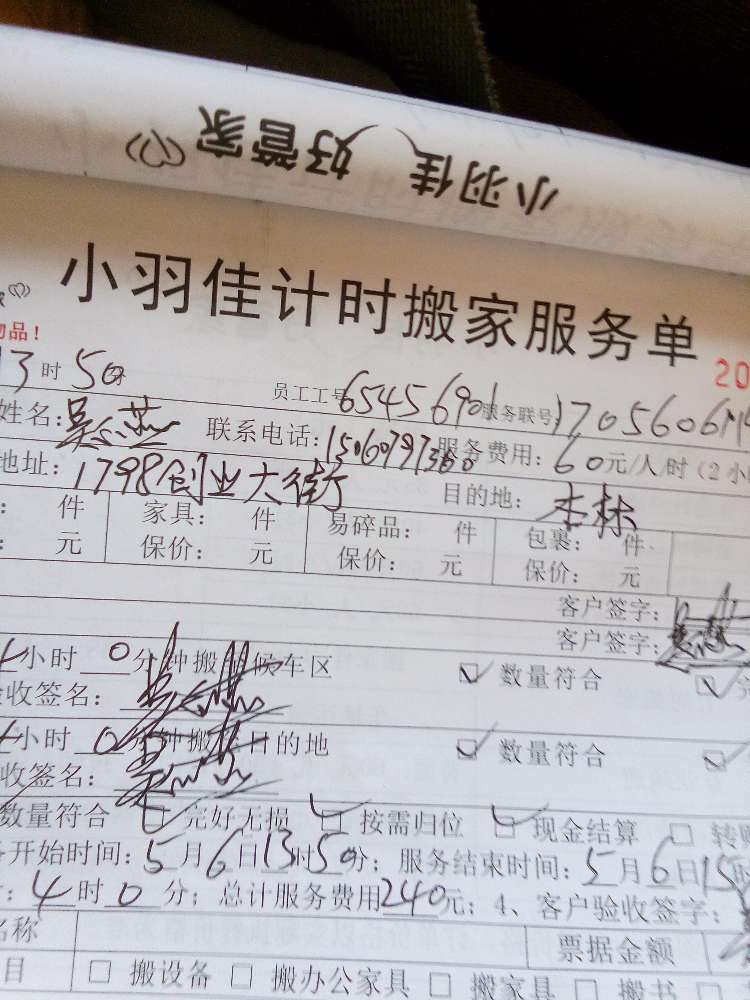 小羽佳 好管家
小羽佳计时搬家服务单
物品！
20
13时50分 员工工号 6545690 服务联号 1705606
姓名： 联系电话：15060797360 服务费用：60元/人/时（2小
地址：1798创业大街 目的地：杏林
件 家具： 件 易碎品： 件 包裹： 件
元 保价： 元 保价： 元 保价： 元
客户签字：
客户签字：
小时 0 分钟搬 候车区 数量符合
收签名：
小时 0 分钟搬 目的地 数量符合
收签名：
数量符合 完好无损 按需归位 现金结算 转
开始时间：5月6日13时50分；服务结束时间：5月6日15时
：4时0分；总计服务费用240元；4、客户验收签字：
名称 票据金额
目 搬设备 搬办公家具 搬家具 搬书